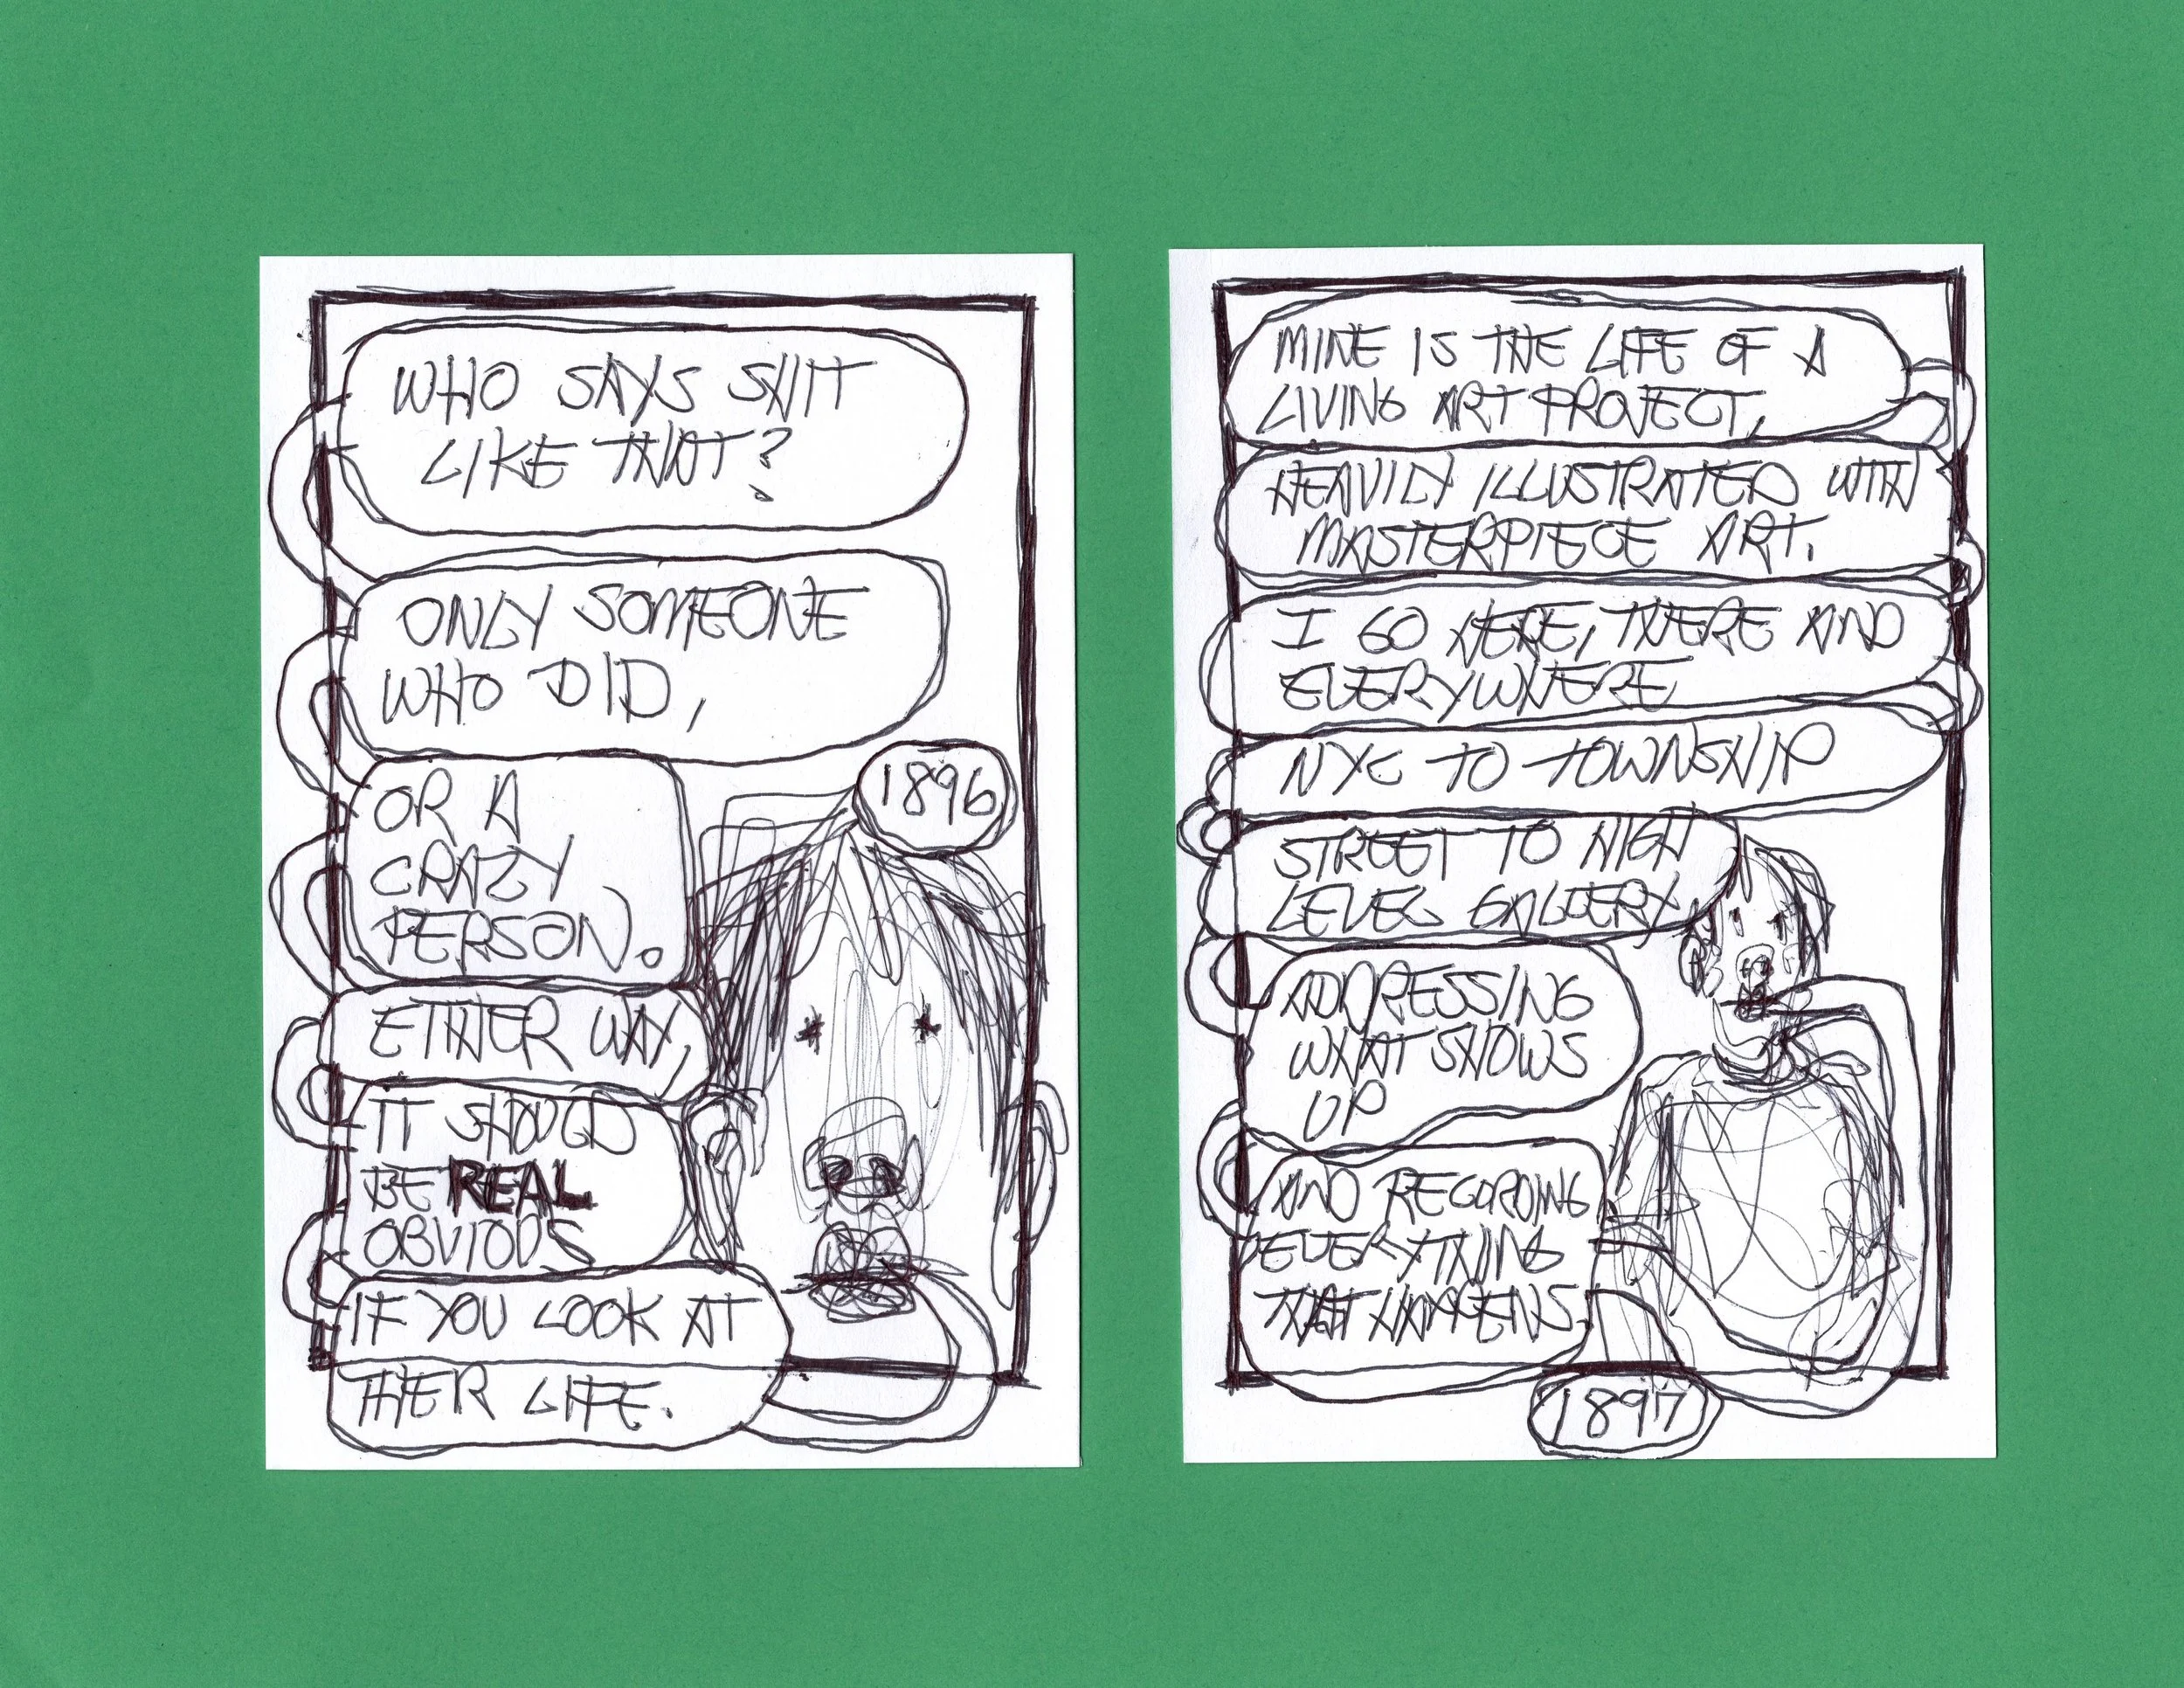 WHO SAYS SHIT
LIKE THAT?
ONLY SOMEONE
WHO DID,
OR A
CRAZY
PERSON.
EITHER WAY,
IT SHOULD
BE REAL
OBVIOUS
IF YOU LOOK AT
THEIR LIFE.
1896
MINE IS THE LIFE OF A
LIVING ART PROJECT,
HEAVILY ILLUSTRATED WITH
MASTERPIECE ART.
I GO HERE, THERE AND
EVERYWHERE
NYC TO TOWNSHIP
STREET TO HIGH
LEVEL GALLERY
ADDRESSING
WHAT SHOWS
UP
AND RECORDING
EVERYTHING
THAT HAPPENS.
1897